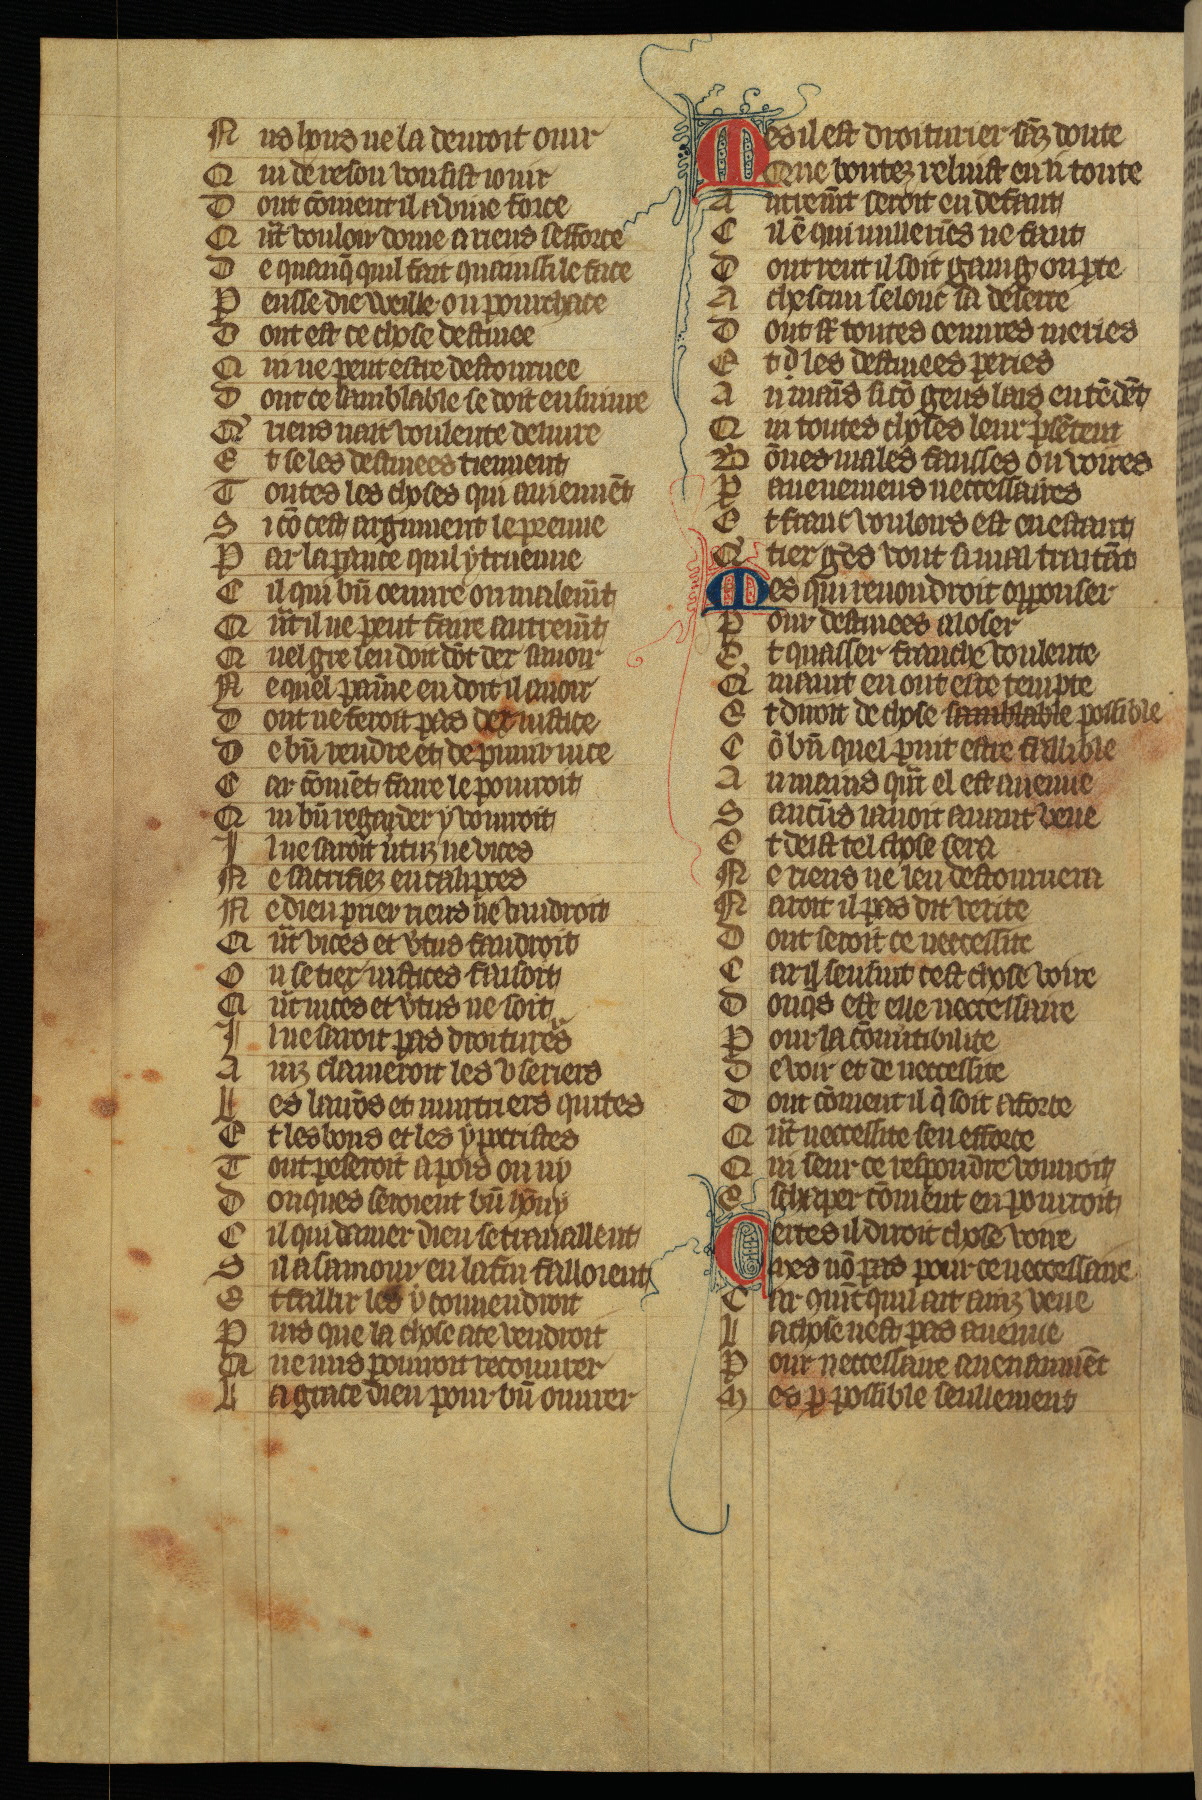 N us hons ne la deuroit ouir
Q ui de reson vousist iouir
D ont cōment il a vme force
Q ūt vouloir dome a riens sefforce
D e quanq̄ quil fait quainsi le face
P ensse die weille ou pourchace
D ont est ce chose destinee
Q ui ne peut estre destournee
D ont ce samblable se doit ensuiure
Q' riens nait voulente deliure
E t se les destinees tiennent
T outes les choses qui auiennēt
S i cō cest argument le preuue
P ar la parance quil y treuue
C il qui bn̄ oeuure ou malemt̄
Q ūt il ne peut faire autremt̄
Q uel gre len doit dōt dex sauoir
N e quel painne en doit il auoir
D ont ne feroit pas dex iustice
D e bn̄ rendre et de punir vice
C ar cōmēt faire le pourroit
Q ui bn̄ regarder y vourroit
I l ne seroit v̄tuz ne vices
N e sacrifiez en calipces
N e dieu prier riens ne vaudroit
Q ūt vices et v̄tus faudroit
O u se diex iustices faisoit
Q ūt vices et v̄tus ne soit
I l ne seroit pas droiturēs
A inz clameroit les vseriers
L es larrōs et murtriers quites
E t les bons et les ypocrites
T out peseroit a pois onny
D onques seroient bn̄ hōny
C il qui damer dieu se trauallent
S il a samour en la fin falloient
E t fallir les y conuendroit
P uis que la chose a ce vendroit
Q ue nus pourroit recouurer
L a grace dieu pour bn̄ ouurer
Mes il est droiturier sāz doute
Que bontez reluist en li toute
A utremt̄ seroit en defaut
C il ē qui nulle riēs ne faut
D ont rent il soit gaaig ou pte
A chascun selonc sa deserte
D ont st̄ toutes oeuures meries
E t d̄ les destinees peries
A u mains si cō gens lais entēdēt
Q ui toutes choses leur p̄sētent
B ōnes males fausses ou voires
P auenemens neccessaires
E t franc vouloirs est en estant
Q' tier gēs vont si mal traitāt
Mes qui reuoudroit opposer
P our destinees aloser
E t quasser franche voulente
Q' maint en ont este tempte
E t diroit de chose samblable possible
C ō bn̄ quel puit estre fallible
A u mains qūt el est auenue
S aucūs lauoit auant veue
E t deist tel chose sera
N e riens ne len destournera
N aroit il pas dit verite
D ont seroit ce neccessite
C ar il sensuit cest chose voire
D onq̄s est elle neccessaire
P our la cōuertibilite
D e voir et de neccessite
D ont cōment il q̄ soit a force
Q ūt neccessite sen efforce
Q ui seur ce respondre vourroit
E schaper cōment en pourroit
Certes il diroit chose voire
Mes nō pas pour ce neccessaire
C ar qūt quil ait ainz veue
L a chose nest pas auenue
P our neccessaire auenanmēt
M es p possible seullement